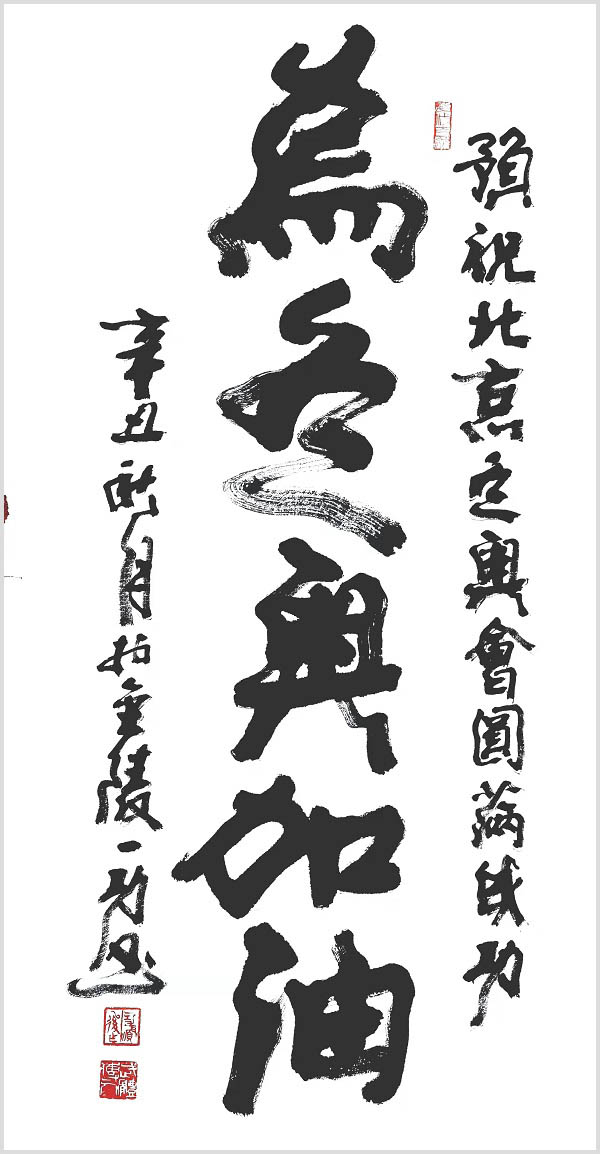 預祝北京冬奧會圓滿成功
為冬奧加油
辛丑秋月於金陵一